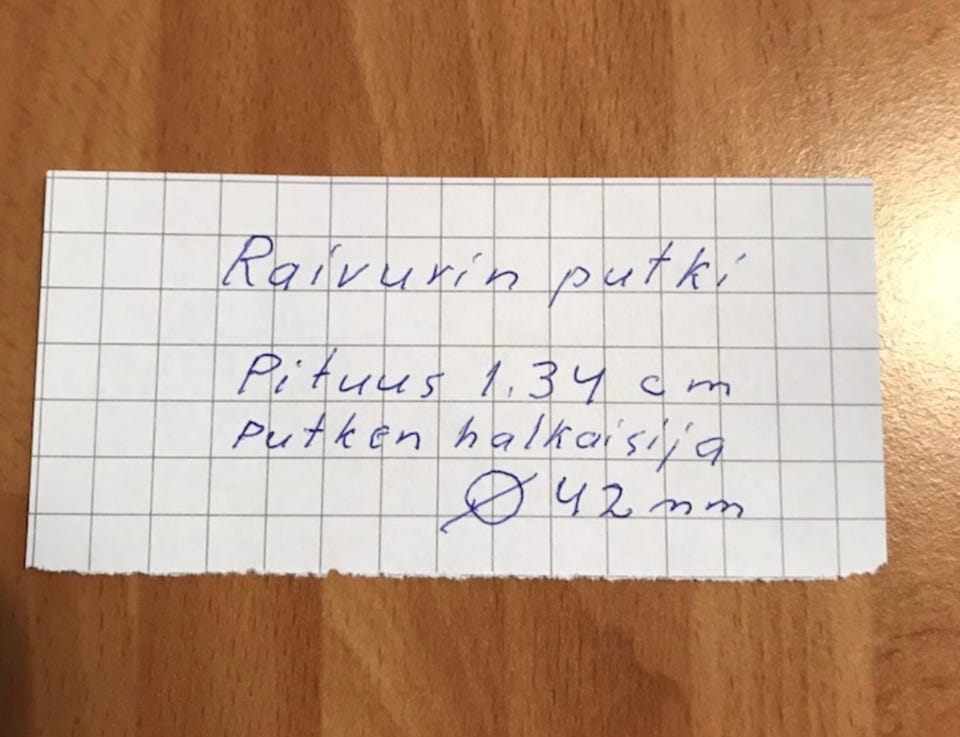 Raivurin putki
Pituus 1.34 cm
putken halkaisija
Ø 42 mm